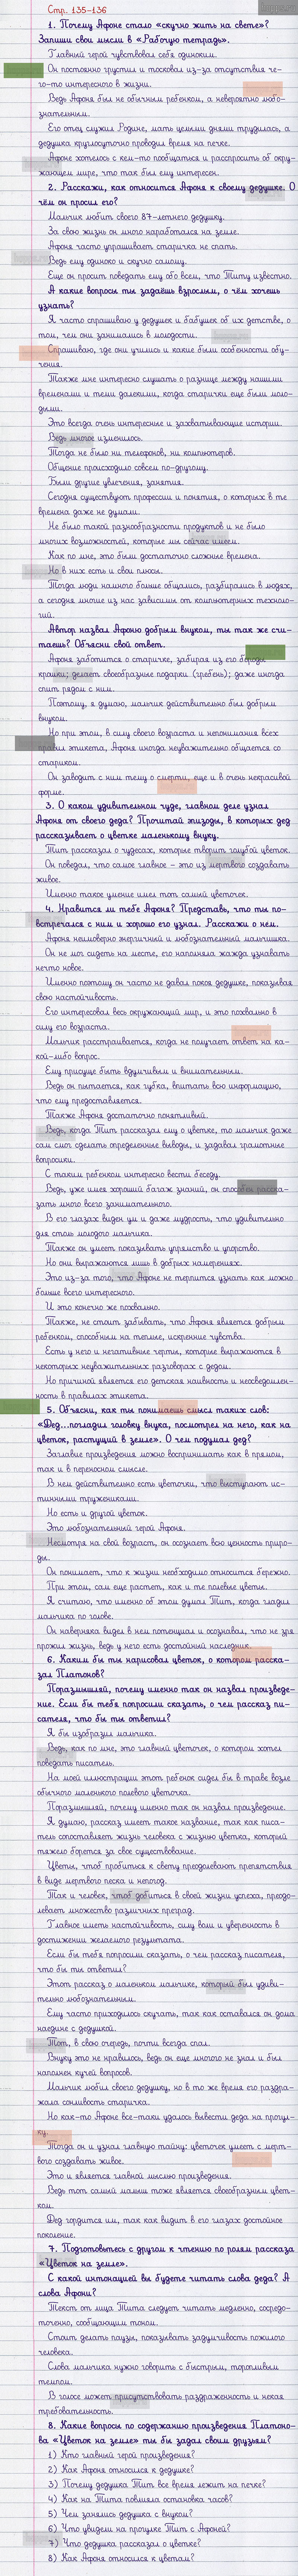 Стр. 135-136
1. Почему Афоне стало «скучно жить на свете»?
Запиши свои мысли в «Рабочую тетрадь».
Главный герой чувствовал себя одиноким.
Он постоянно грустил и тосковал из-за отсутствия че-
го-то интересного в жизни.
Ведь Афоня был не обычным ребенком, а невероятно любо-
знательным.
Его отец служил Родине, мать целыми днями трудилась, а
дедушка круглосуточно проводил время на печке.
Афоне хотелось с кем-то пообщаться и расспросить об окру-
жающем мире, что так был ему интересен.
2. Расскажи, как относится Афоня к своему дедушке. О
чём он просил его?
Мальчик любит своего 87-летнего дедушку.
За свою жизнь он много наработался на земле.
Афоня часто упрашивает старичка не спать.
Ведь ему одиноко и скучно самому.
Еще он просит поведать ему обо всем, что Титу известно.
А какие вопросы ты задаёшь взрослым, о чём хочешь
узнать?
Я часто спрашиваю у дедушек и бабушек об их детстве, о
том, чем они занимались в молодости.
Спрашиваю, где они учились и какие были особенности обу-
чения.
Также мне интересно слушать о разнице между нашими
временами и теми далекими, когда старички еще были моло-
дыми.
Это всегда очень интересные и захватывающие истории.
Ведь многое изменилось.
Тогда не было ни телефонов, ни компьютеров.
Общение происходило совсем по-другому.
Были другие увлечения, занятия.
Сегодня существуют профессии и понятия, о которых в те
времена даже не думали.
Не было такой разнообразности продуктов и не было
многих возможностей, которые мы сейчас имеем.
Как по мне, это были достаточно сложные времена.
Но в них есть и свои плюсы.
Тогда люди намного больше общались, разбирались в людях,
а сегодня многие из нас зависимы от компьютерных техноло-
гий.
Автор назвал Афоню добрым внуком, ты так же счи-
таешь? Объясни свой ответ.
Афоня заботится о старичке, забирая из его бороды
крошки; делает своеобразные подарки (гребень); даже иногда
спит рядом с ним.
Поэтому, я думаю, мальчик действительно был добрым
внуком.
Но при этом, в силу своего возраста и непонимания всех
правил этикета, Афоня иногда неуважительно общается со
стариком.
Он заводит с ним тему о смерти, еще и в очень некрасивой
форме.
3. О каком удивительном чуде, главном деле узнал
Афоня от своего деда? Прочитай эпизоды, в которых дед
рассказывает о цветке маленькому внуку.
Тит рассказал о чудесах, которые творит голубой цветок.
Он поведал, что самое главное – это из мертвого создавать
живое.
Именно такое умение имел тот самый цветок.
4. Нравится ли тебе Афоня? Представь, что ты по-
встречался с ним и хорошо его узнал. Расскажи о нём.
Афоня неимоверно энергичный и любознательный мальчишка.
Он не мог сидеть на месте, его наполняла жажда узнавать
нечто новое.
Именно поэтому он часто не давал покоя дедушке, показывая
свою настойчивость.
Его интересовал весь окружающий мир, и это похвально в
силу его возраста.
Мальчик расстраивается, когда не получает ответ на ка-
кой-либо вопрос.
Ему присуще быть вдумчивым и внимательным.
Ведь он пытается, как губка, впитать всю информацию,
что ему предоставляется.
Также Афоня достаточно понятливый.
Ведь, когда Тит рассказал ему о цветке, то мальчик даже
сам смог сделать определенные выводы, и задавал грамотные
вопросики.
С таким ребенком интересно вести беседу.
Ведь, уже имея хороший багаж знаний, он способен расска-
зать много всего занимательного.
В его глазах виден ум и даже мудрость, что удивительно
для столь молодого мальчика.
Также он умеет показывать упрямство и упорство.
Но они выражаются лишь в добрых намерениях.
Это из-за того, что Афоне не терпится узнать как можно
больше всего интересного.
И это конечно же похвально.
Также, не стоит забывать, что Афоня является добрым
ребенком, способным на теплые, искренние чувства.
Есть у него и негативные черты, которые выражаются в
некоторых неуважительных разговорах с дедом.
Но причиной является его детская наивность и неосведомлен-
ность в правилах этикета.
5. Объясни, как ты понимаешь смысл таких слов:
«Дед...погладил головку внука, посмотрел на него, как на
цветок, растущий в земле». О чем подумал дед?
Заглавие произведения можно воспринимать как в прямом,
так и в переносном смысле.
В нем действительно есть цветочки, что выступают ис-
тинными тружениками.
Но есть и другой цветок.
Это любознательный герой Афоня.
Несмотря на свой возраст, он осознает всю ценность приро-
ды.
Он понимает, что к жизни необходимо относится бережно.
При этом, сам еще растет, как и те полевые цветы.
Я считаю, что именно об этом думал Тит, когда гладил
мальчика по голове.
Он наверняка видел в нем потенциал и осознавал, что не зря
прожил жизнь, ведь у него есть достойный наследник.
6. Каким бы ты нарисовал цветок, о котором расска-
зал Платонов?
Поразмышляй, почему именно так он назвал произведе-
ние. Если бы тебя попросили сказать, о чем рассказ пи-
сателя, что бы ты ответил?
Я бы изобразил мальчика.
Ведь, как по мне, это главный цветочек, о котором хотел
поведать писатель.
На моей иллюстрации этот ребенок сидел бы в траве возле
обычного маленького полевого цветочка.
Поразмышляй, почему именно так он назвал произведение.
Я думаю, рассказ имеет такое название, так как писа-
тель сопоставляет жизнь человека с жизнью цветка, который
тяжело борется за свое существование.
Цветы, чтоб пробиться к свету преодолевают препятствия
в виде мертвого песка и непогод.
Так и человек, чтоб добиться в своей жизни успеха, преодо-
левает множество различных преград.
Главное иметь настойчивость, силу воли и уверенность в
достижении желаемого результата.
Если бы тебя попросили сказать, о чем рассказ писателя,
что бы ты ответил?
Этот рассказ о маленьком мальчике, который был удиви-
тельно любознательным.
Ему часто приходилось скучать, так как оставался он дома
наедине с дедушкой.
Тот, в свою очередь, почти всегда спал.
Внуку это не нравилось, ведь он еще многого не знал и был
наполнен кучей вопросов.
Мальчик любил своего дедушку, но в то же время его раздра-
жала сонливость старичка.
Но как-то Афоне все-таки удалось вывести деда на прогул-
ку.
Тогда он и узнал главную тайну: цветочек умеет с мерт-
вого создавать живое.
Это и является главной мыслью произведения.
Ведь тот самый малыш тоже является своеобразным цвет-
ком.
Дед гордится им, так как видит в его глазах достойное
поколение.
7. Подготовьтесь с другом к чтению по ролям рассказа
«Цветок на земле».
С какой интонацией вы будете читать слова деда? А
слова Афони?
Текст от лица Тита следует читать медленно, сосредо-
точенно, сообщающим тоном.
Стоит делать паузы, показывать задумчивость пожилого
человека.
Слова мальчика нужно говорить с быстрым, торопливым
темпом.
В голосе может присутствовать раздраженность и некая
требовательность.
8. Какие вопросы по содержанию произведения Платоно-
ва «Цветок на земле» ты бы задал своим друзьям?
1) Кто главный герой произведения?
2) Как Афоня относился к дедушке?
3) Почему дедушка Тит все время лежит на печке?
4) Как на Тита повлияла остановка часов?
5) Чем занялись дедушка с внуком?
6) Что увидели на прогулке Тит с Афоней?
7) Что дедушка рассказал о цветке?
8) Как Афоня относился к цветам?